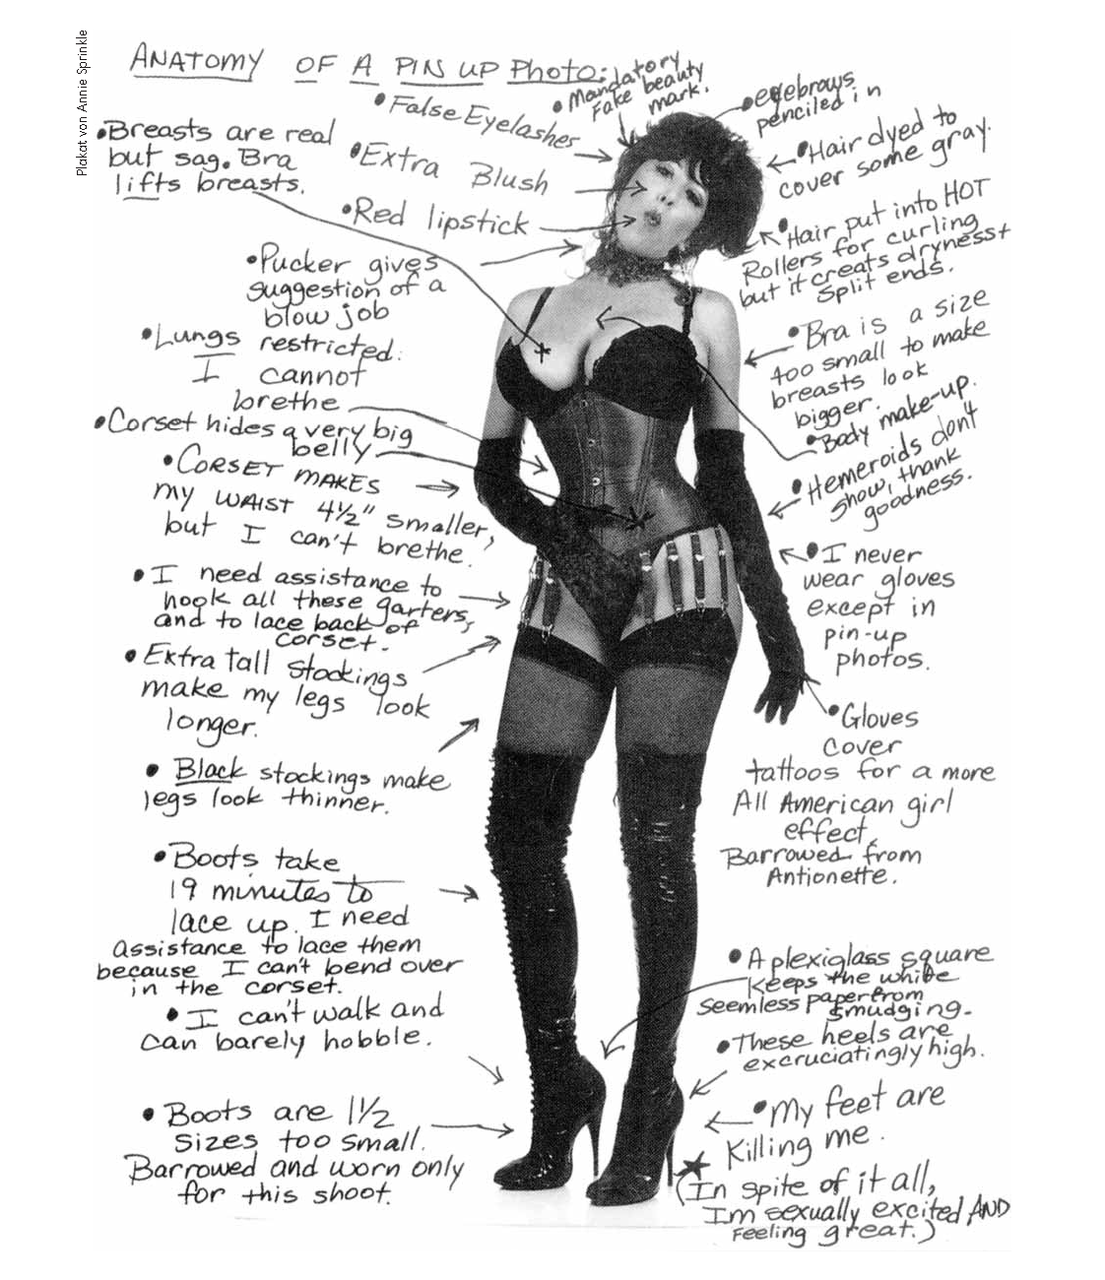 Plakat von Annie Sprinkle
ANATOMY OF A PIN UP Photo:
•Mandatory
Fake beauty
mark.
•False Eyelashes
•eyebrows
penciled in
•Hair dyed to
cover some gray.
•Breasts are real
but sag. Bra
lifts breasts.
•Extra Blush
•Red lipstick
•Hair put into HOT
Rollers for curling
but it creats dryness+
split ends.
•Pucker gives
suggestion of a
blow job
•Bra is a size
too small to make
breasts look
bigger.
•Lungs restricted.
I cannot
brethe
•Body make-up.
•Corset hides a very big
belly
•Hemeroids don't
show, thank
goodness.
•CORSET MAKES
my WAIST 4½" smaller,
but I can't brethe.
•I never
wear gloves
except in
pin-up
photos.
•I need assistance to
hook all these garters,
and to lace back of
corset.
•Extra tall stockings
make my legs look
longer.
•Gloves
cover
tattoos for a more
All American girl
effect.
Barrowed from
Antionette.
•Black stockings make
legs look thinner.
•Boots take
19 minutes to
lace up. I need
assistance to lace them
because I can't bend over
in the corset.
•A plexiglass square
Keeps the white
seemless paper from
smudging.
•I can't walk and
can barely hobble.
•These heels are
excruciatingly high.
•Boots are 1½
sizes too small.
Barrowed and worn only
for this shoot.
•My feet are
Killing me.
(In spite of it all,
Im sexually excited AND
feeling great.)